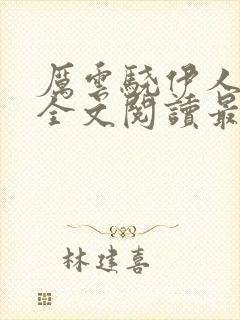 厲雲驍伊人
全文閱讀最
林建喜